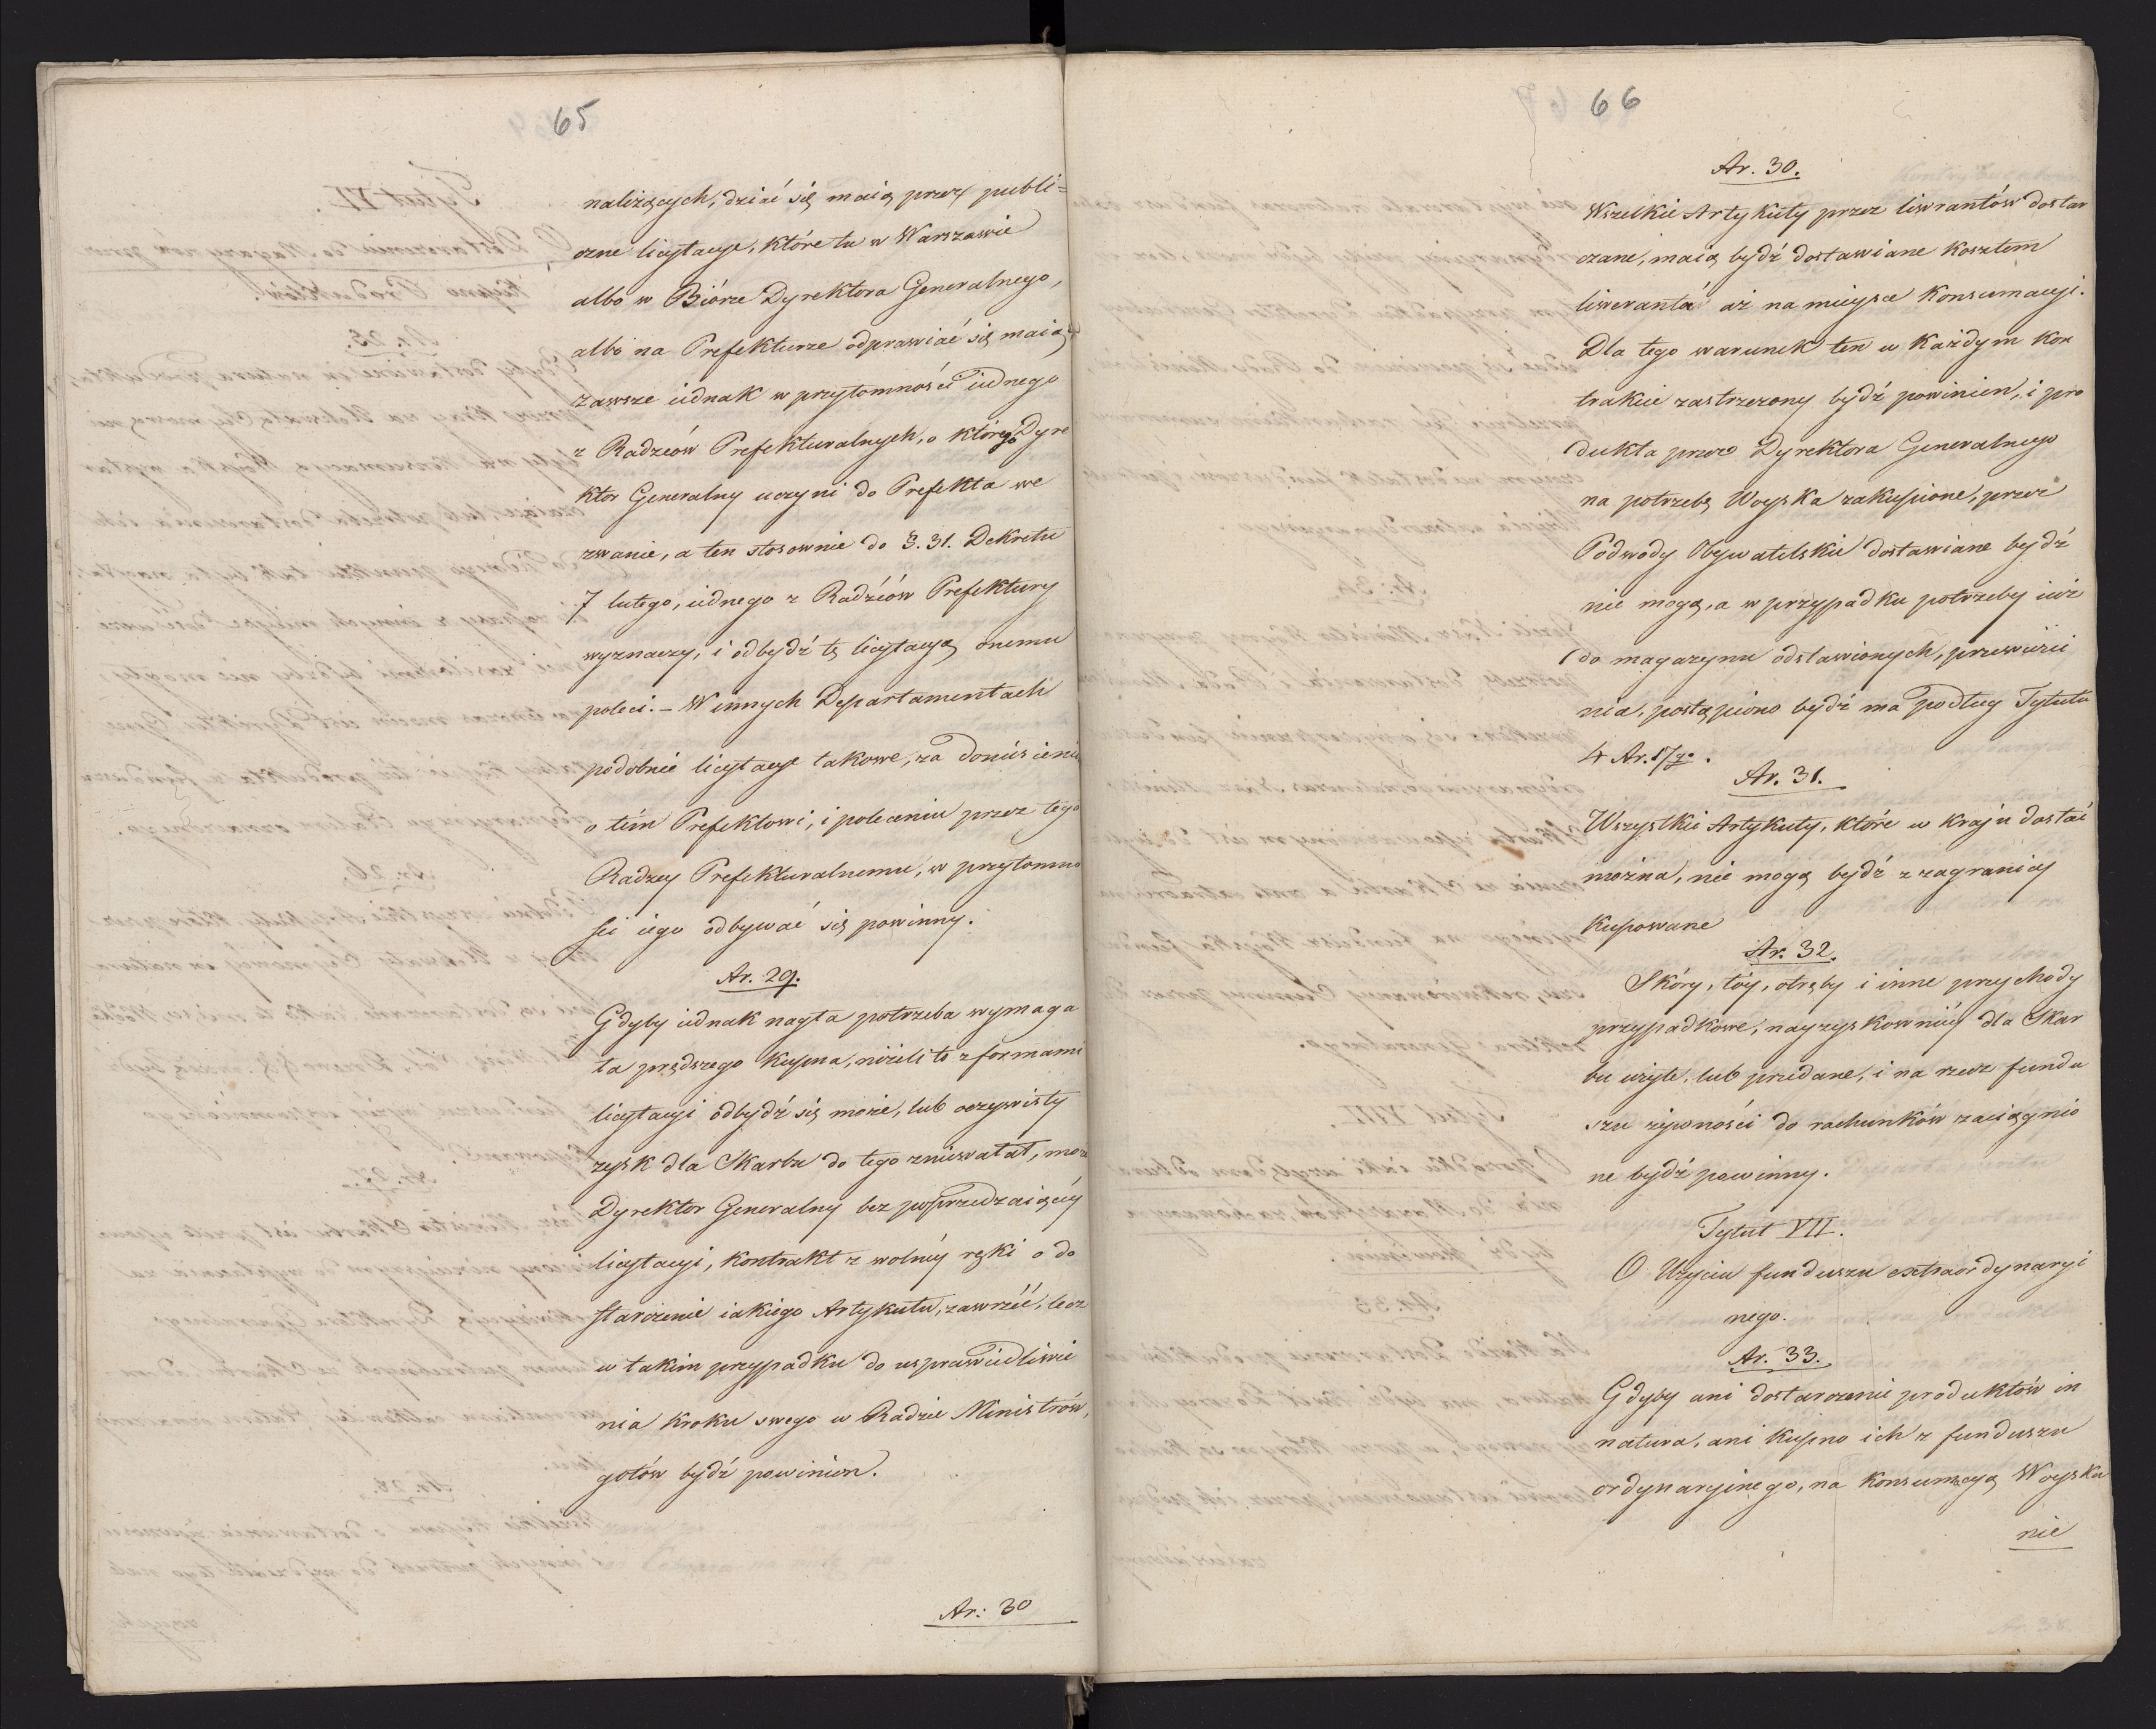 65
należących, dziać się maią przez publi=
czne licytacye, które tu w Warszawie
albo w Biórze Dyrektora Generalnego,
albo na Prefekturze odprawiać się maią,
zawsze iednak w przytomności iednego
z Radzców Prefekturalnych, o którego Dyre
ktor Generalny uczyni do Prefekta we
zwanie, a ten stosownie do §. 31. Dekretu
7 lutego, iednego z Radźców Prefektury
wyznaczy, i odbydź tę licytacyą onemu
poleci. – W innych Departamentach
podobnie licytacye takowe, za doniesieniem
o tém Prefektowi, i poleceniu przez tego
Radzcy Prefekturalnemu, w przytomno
ści iego odbywać się powinny.
Ar. 29.
Gdyby iednak nagła potrzeba wymaga
ła prędszego kupna, niżeli to z formami
licytacyi odbydź się może, lub oczywisty
zysk dla Skarbu do tego zniewalał, może
Dyrektor Generalny bez poprzedzaiącéy
licytacyi, kontrakt z wolnéy ręki o do
starczenie iakiego Artykułu, zawrzéć, lecz
w takim przypadku do usprawiedliwie
nia kroku swego w Radzie Ministrów,
gotów bydź powinien.
Ar: 30
66
Ar. 30.
Wszelkie Artykuły przez liwrantów dostar
czane, maią bydź dostawiane kosztem
liweranta aż na mieysce Konsumacyi.
Dla tego warunek ten w każdym kon
trakcie zastrzeżony bydź powinien, i pro
dukta przez Dyrektora Generalnego
na potrzebę Woyska zakupione, przez
Podwody Obywatelskie dostawiane bydź
nie mogą, a w przypadku potrzeby iuż
do magazynu odstawionych, przewiezie
nia, postąpiono bydź ma podług Tytułu
4 Ar. 17go.
Ar. 31.
Wszystkie Artykuły, które w kraju dostać
można, nie mogą bydź z zagranicy
kupowane
Ar. 32.
Skóry, łóy, otręby i inne przychody
przypadkowe, nayzyskowniéy dla Skar
bu użyte, lub przedane, i na rzecz fundu
szu żywności do rachunków zaciągnio
ne bydź powinny.
Tytuł VII.
O Użyciu funduszu extraordynaryi
nego.
Ar. 33.
Gdyby ani dostarczenie produktów in
natura, ani kupno ich z funduszu
ordynaryinego, na konsumacyą Woyska
nie